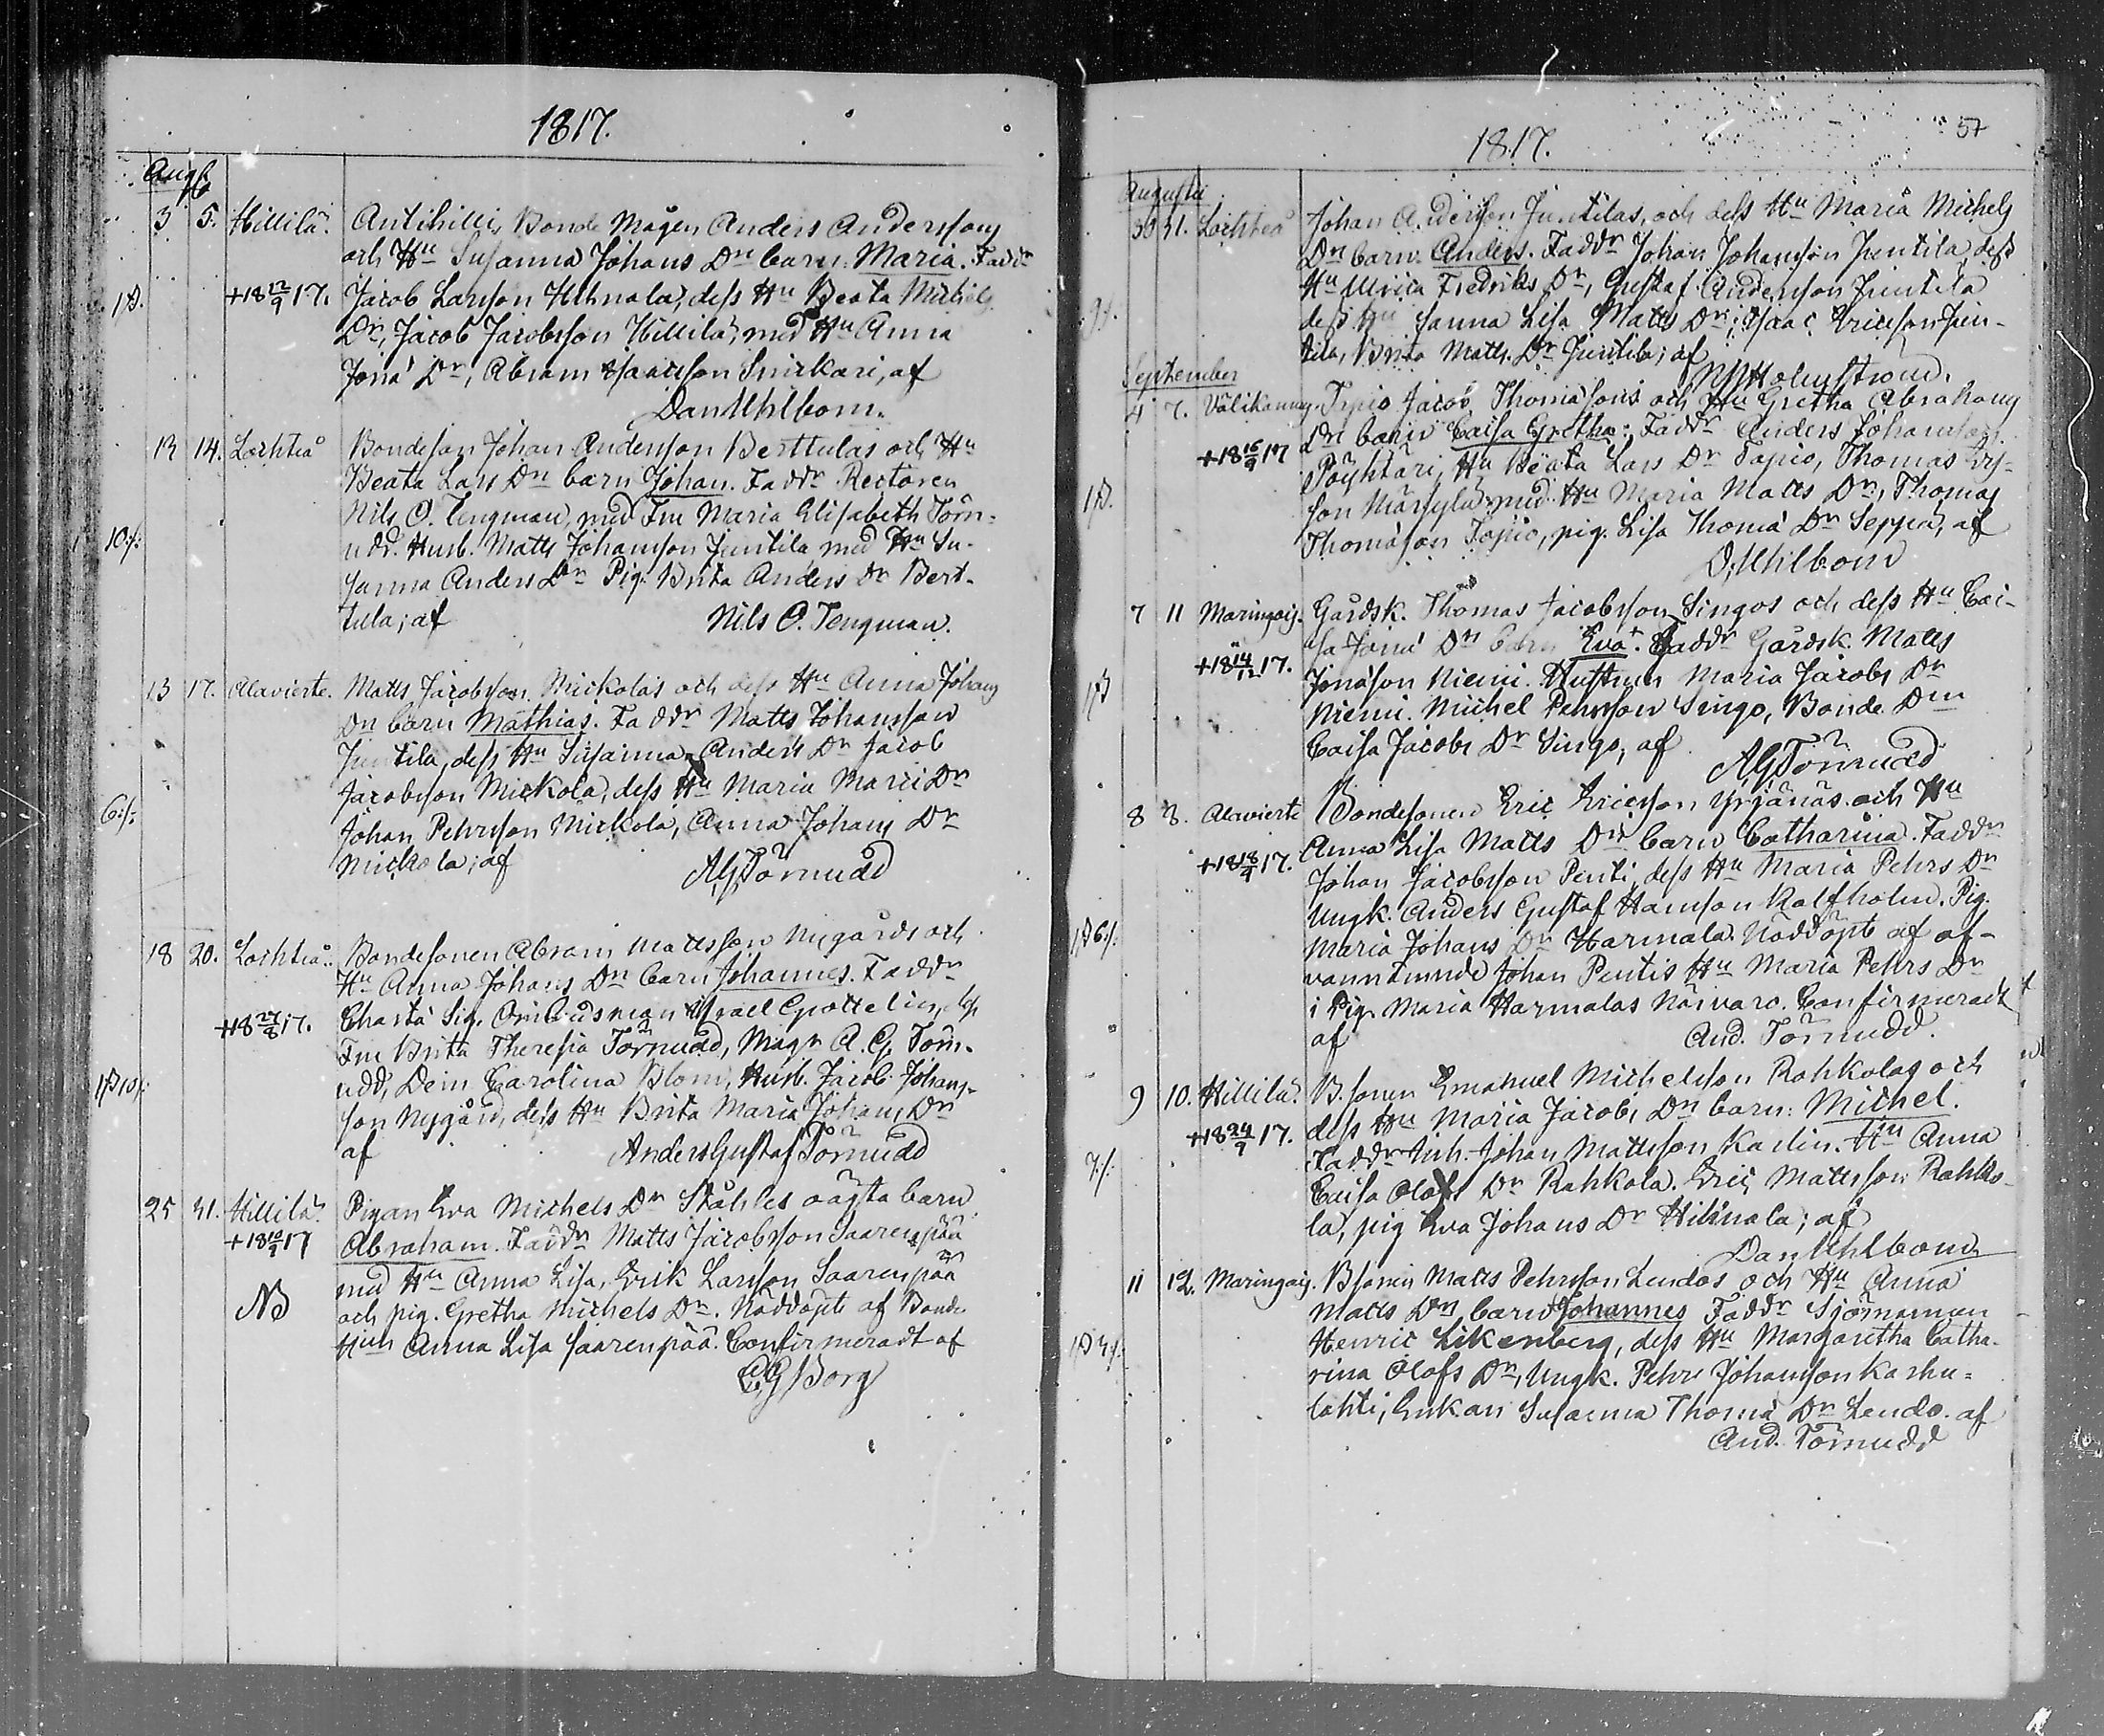 1817.
Augti
3 5. Hillilä. Antihillis Bonde Mågen Anders Anderssons
och Hu Susanna Johans Dn barn: Maria. Faddr
1 D. +18 12/9 17. Jacob Larsson Hihnala, dess Hu Beata Michels
Dr, Jacob Jacobsson Hillilä, med Hu Anna
Jona Dr, Abram Isaacsson Snickari, af
Dan Uhlbom.
13 14. Lochteå Bondeson Johan Andersson Berttulas och Hu
Beata Lars Dn barn Johan. Faddr Rectoren
Nils O. Tengman, med Fru Maria Elisabeth Törn-
10./: udd. Husb. Matts Johansson Juntila med Hu Su-
sanna Anders Dr Pig. Brita Anders Dr Bert-
tula; af Nils O. Tengman.
13 17. Alavierte. Matts Jacobsson Mickolas och dess Hu Anna Johans
Dn barn Mathias. Faddr Matts Johansson
Juntila, dess Hu Susanna Anders Dr Jacob
Jacobsson Mickola, dess Hu Maria Marci Dr
6./: Johan Pehrsson Mickola, Anna Johans Dr
Mickola; af AGTörnudd
18 20. Lochteå. Bondesonen Abram Mattsson Nygårds och
Hu Anna Johans Dn barn Johannes. Faddr
+18 27/8 17. Charta Sig. Ombudsman Israel dess
Fru Brita Theresia Törnudd, Magr A. G. Törn-
udd, Dem Carolina Blom, Husb. Jacob Johans-
son Nygård, dess Hu Brita Maria Johans Dr
af Anders Gustaf Törnudd
25 31. Hillilä. Pigan Eva Michels Dr Ståhles oägta barn
+18 10/9 17 Abraham. Faddr Matts Jacobsson Saarenpää
med Hu Anna Lisa, Erik Larsson Saarenpää
NB och pig. Gretha Michels Dr. Nöddöpt af Bonde
Hun Anna Lisa Saarenpää. Confirmeradt af
CG Borg
57
1817.
Augusti
30 31. Lochteå Johan Andersson Juntilas, och dess Hu Maria Michels
Dn barn: Anders. Faddr Johan Johansson Juntila, dess
9./. Hu Ulrica Fredriks Dr, Gustaf Andersson Juntila
dess Hu Sanna Lisa Matts Dr; Isaac Ericsson Jun-
tila, Brita Matts Dr Juntila; af
Holmström.
September
4 7. Välikannus. Tapio Jacob Thomassons och Hu Gretha Abrahams
Dn barn Caisa Gretha: Faddr Anders Johansson
+18 16/9 17 Pöyhtäri, Hu Beata Lars Dr Tapio, Thomas
1 D. son Märsylä med Hu Maria Matts Dr, Thomas
Thomasson Tapio, pig. Lisa Thoma Dr Seppä, af
D. Uhlbom
7 11 Maringais. Gårdsk. Thomas Jacobsson Singos och dess Hu Cai-
sa Jona Dn barn Eva. Faddr Gårdsk. Matts
+18 14/12 17. Jonasson Niemi. Hustrun Maria Jacobs Dr
Niemi. Michel Pehrsson Singo, Bonde Drn
Caisa Jacobs Dr Singo, af AGTörnudd
8 8. Alavierte Bondesonen Eric Ericsson Yrjänäs och Hu
Anna Lisa Matts Dn barn Catharina. Faddr
+18 18/9 17. Johan Jacobsson Penti, dess Hu Maria Pehrs Dr
Ungk. Anders Gustaf Hansson Kalfholm. Pig.
1 D 6/: Maria Johans Dr Harmala. Nöddöpt af of-
vannämnde Johan Pentis Hu Maria Pehrs Dr
i Pig. Maria Harmalas närvaro. Confirmeradt
af And. Törnudd.
9 10. Hillilä. B.sonen Emanuel Michelsson Rahkolas och
dess Hu Maria Jacobs Dn barn: Michel.
+18 24/9 17. Faddr Inh. Johan Mattsson Karlin. Hu Anna
7./: Caisa Olofs Dr Rahkola. Eric Mattsson Rahko-
la, pig Eva Johans Dr Hihnala; af
Dan Uhlbom
11 12. Maringais. Bsonen Matts Pehrsson Lendos och Hu Anna
Matts Dn barn Johannes Faddr Sjömannen
Henric Likenberg, dess Hu Margaretha Catha-
rina Olofs Dr, Ungk. Pehr Johansson Karhu-
lahti, Enkan Susanna Thoma Dr Lendo. af
And. Törnudd